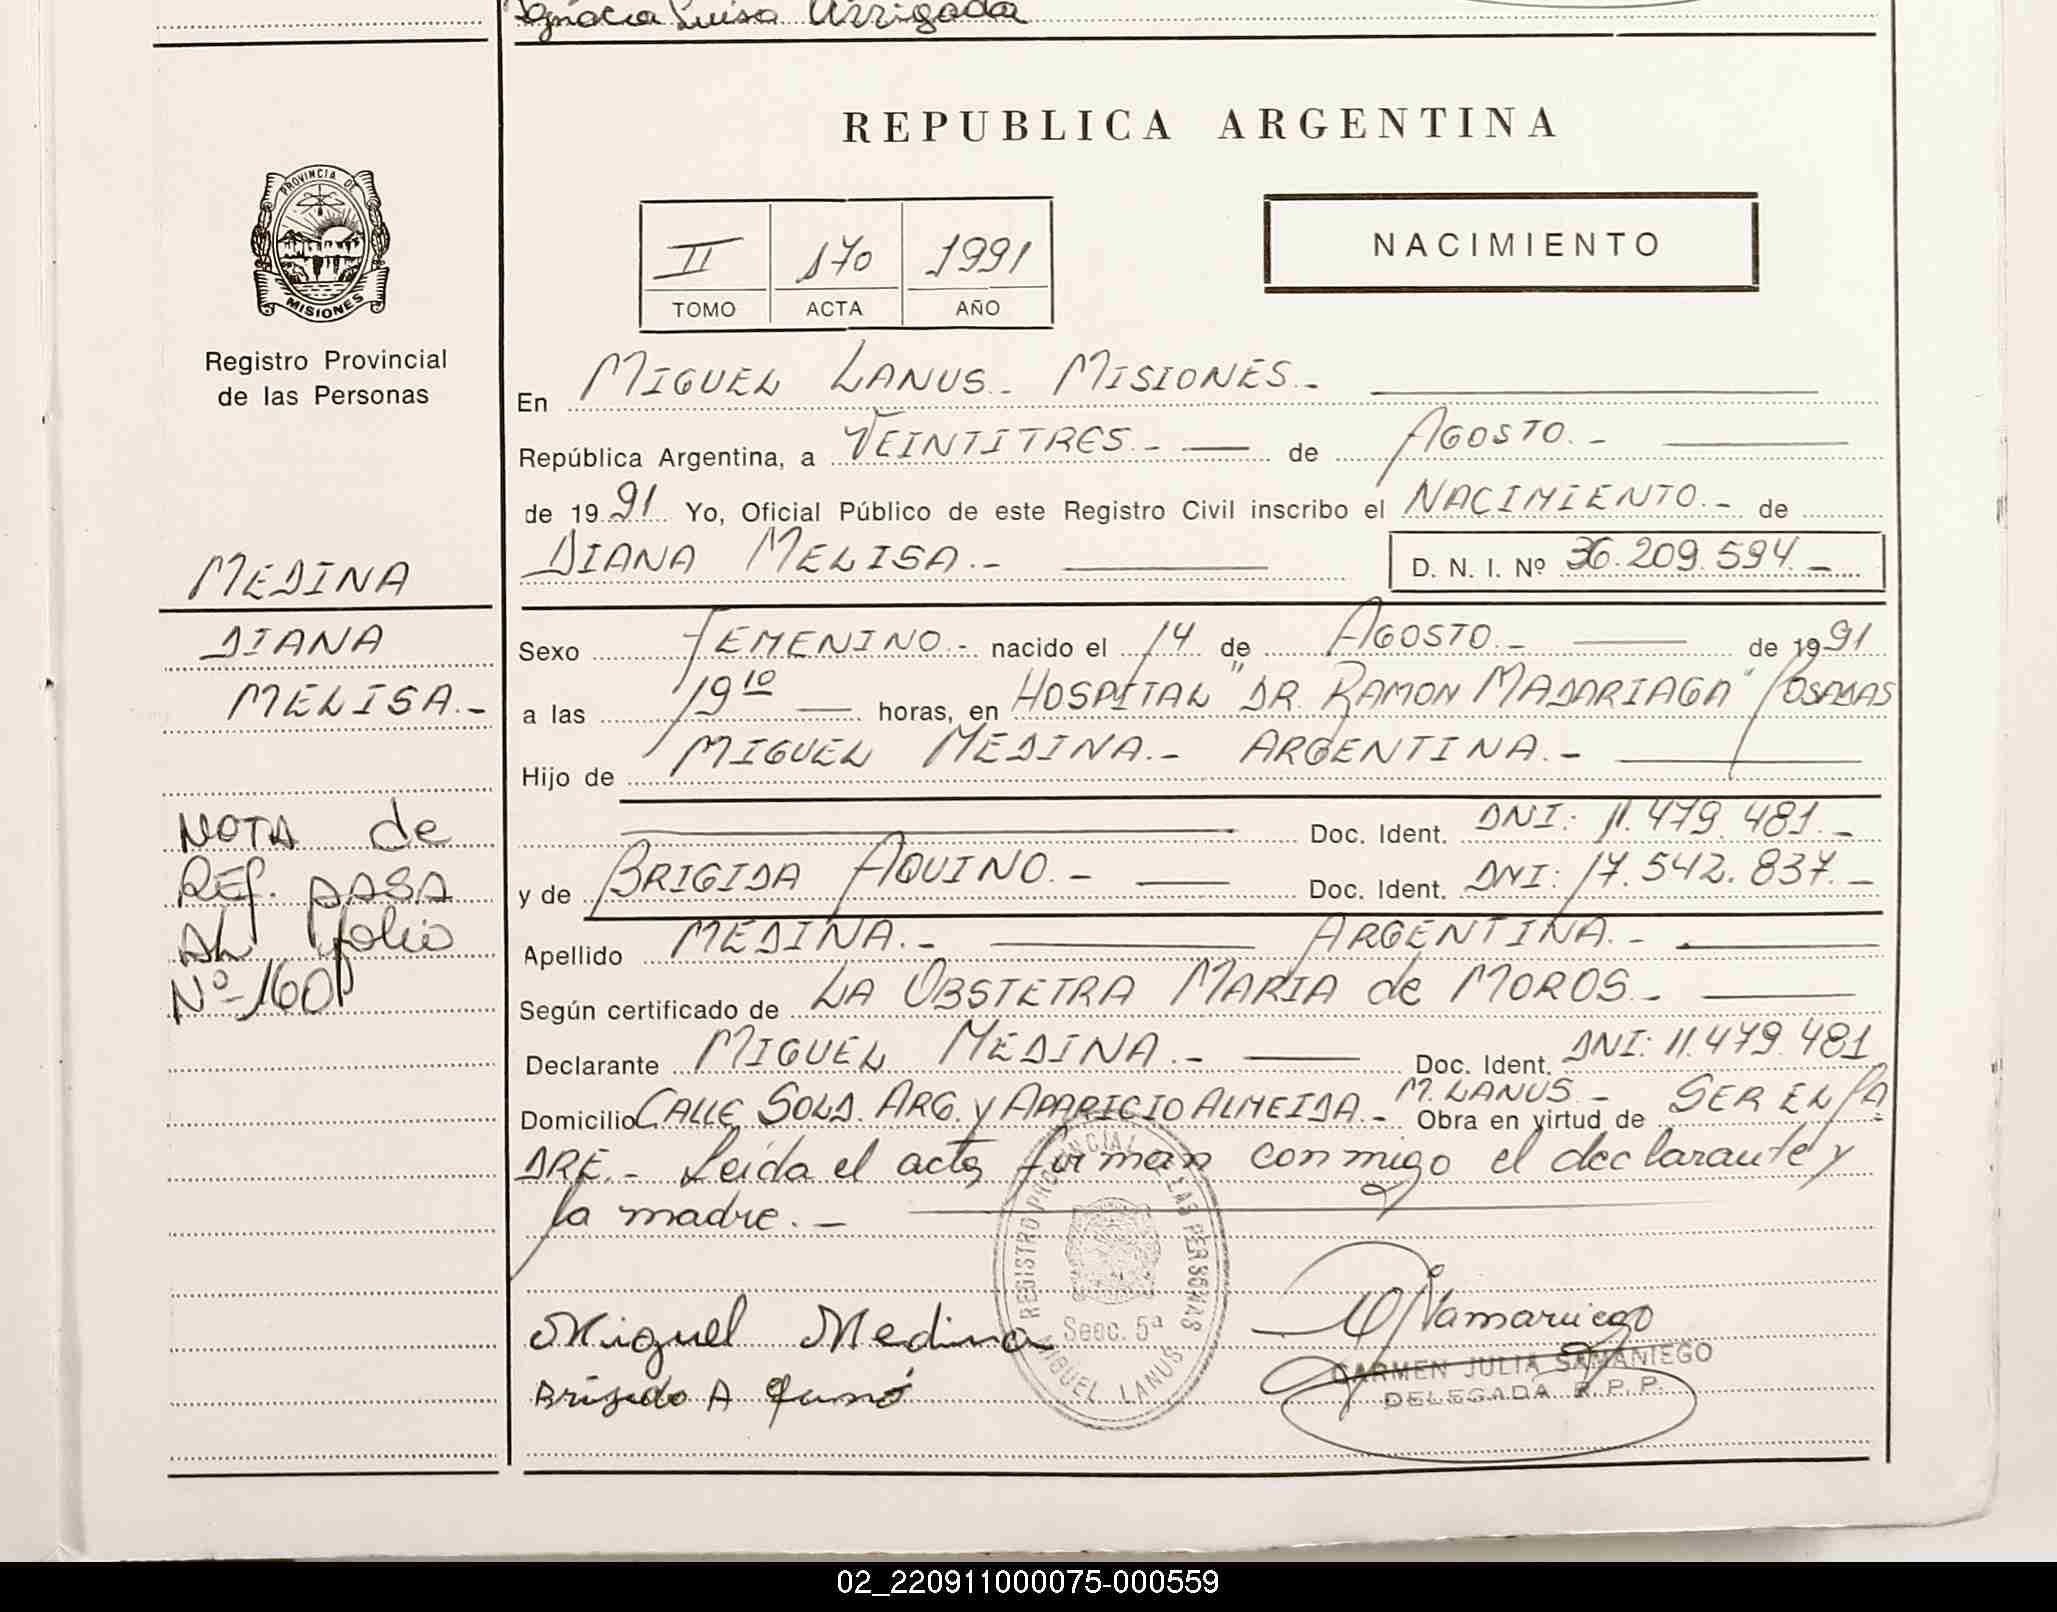 Ignacia Luisa Arrigada
REPUBLICA ARGENTINA
PROVINCIA DE
MISIONES
Registro Provincial
de las Personas
II 170 1991
TOMO ACTA AÑO
NACIMIENTO
En MIGUEL LANUS.- MISIONES.-
República Argentina, a VEINTITRES.- de AGOSTO.-
de 1991 Yo, Oficial Público de este Registro Civil inscribo el NACIMIENTO.- de
DIANA MELISA.- D. N. I. Nº 36.209.594.-
MEDINA
DIANA
MELISA.-
NOTA de
REF. PASA
AL folio
Nº-160
Sexo FEMENINO.- nacido el 14 de AGOSTO.- de 1991
a las 19 10 horas, en HOSPITAL "DR. RAMON MADARIAGA" POSADAS
Hijo de MIGUEL MEDINA.- ARGENTINA.-
Doc. Ident. DNI: 11.479.481.-
y de BRIGIDA AQUINO.- Doc. Ident. DNI: 17.542.837.-
Apellido MEDINA.- ARGENTINA.-
Según certificado de LA OBSTETRA MARIA de MOROS.-
Declarante MIGUEL MEDINA.- Doc. Ident. DNI: 11.479.481
Domicilio CALLE SOLD. ARG. y APARICIO ALMEIDA.- M. LANUS.- Obra en virtud de SER EL PA
DRE.- Leída el acta, firman conmigo el declarante y
la madre.-
REGISTRO PROVINCIAL LAS PERSONAS
Secc. 5ª
MIGUEL LANUS
Miguel Medina
CARMEN JULIA SAMANIEGO
DELEGADA R.P.P.
02_220911000075-000559